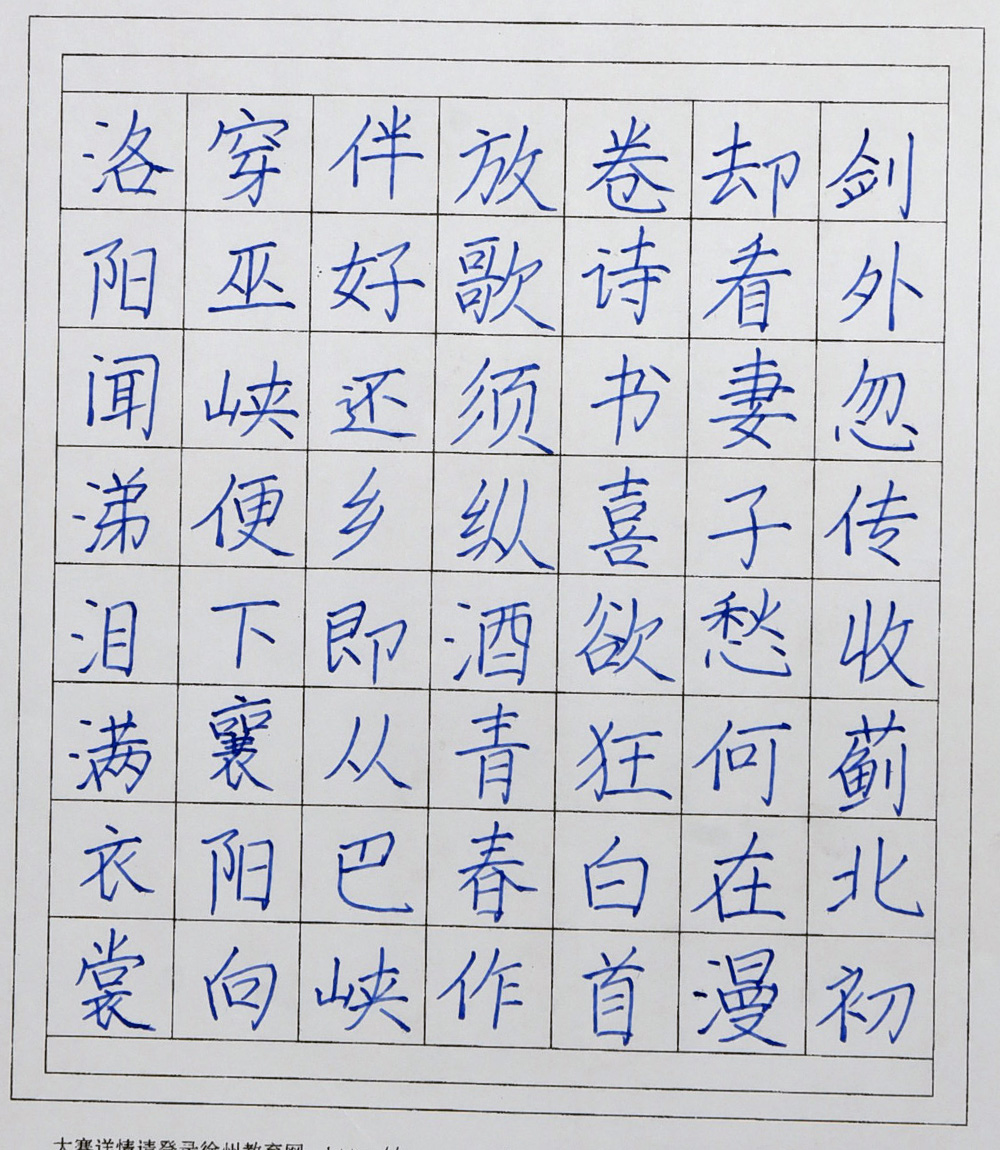 剑外忽传收蓟北初
却看妻子愁何在漫
卷诗书喜欲狂白首
放歌须纵酒青春作
伴好还乡即从巴峡
穿巫峡便下襄阳向
洛阳闻涕泪满衣裳
大赛详情请登录徐州教育网